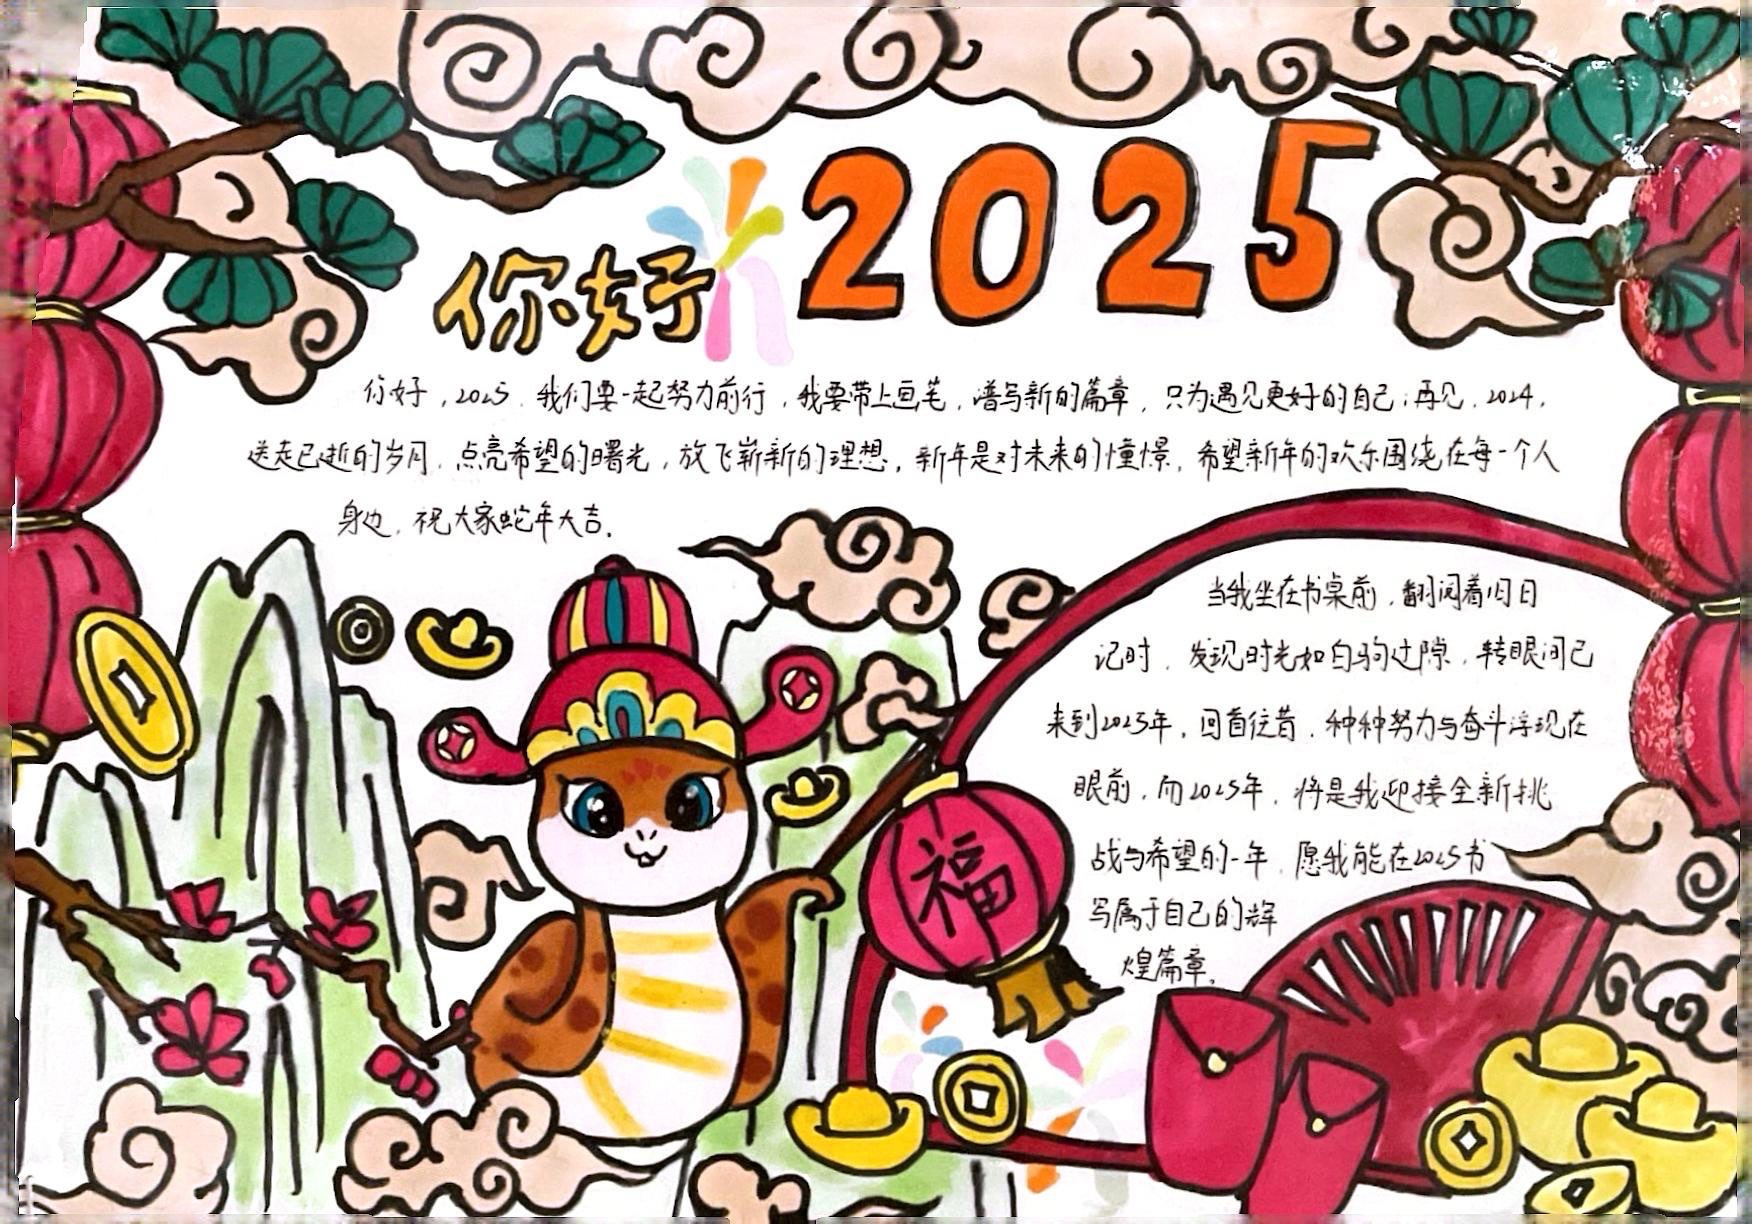 你好
2025
你好,2025.我们要一起努力前行,我要带上画笔,谱写新的篇章,只为遇见更好的自己;再见,2024,
送走已逝的岁月,点亮希望的曙光,放飞崭新的理想,新年是对未来的憧憬,希望新年的欢乐围绕在每一个人
身边,祝大家蛇年大吉.
当我坐在书桌前,翻阅着旧日
记时,发现时光如白驹过隙,转眼间已
来到2025年,回首往昔,种种努力与奋斗浮现在
眼前,而2025年,将是我迎接全新挑
战与希望的一年,愿我能在2025书
写属于自己的辉
煌篇章.
福